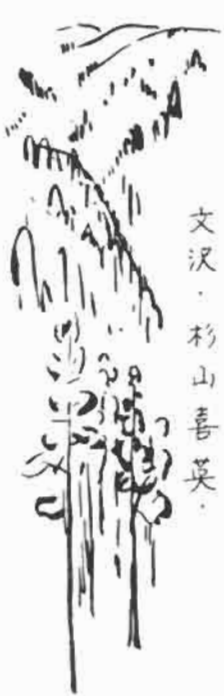 文沢・杉山喜英・